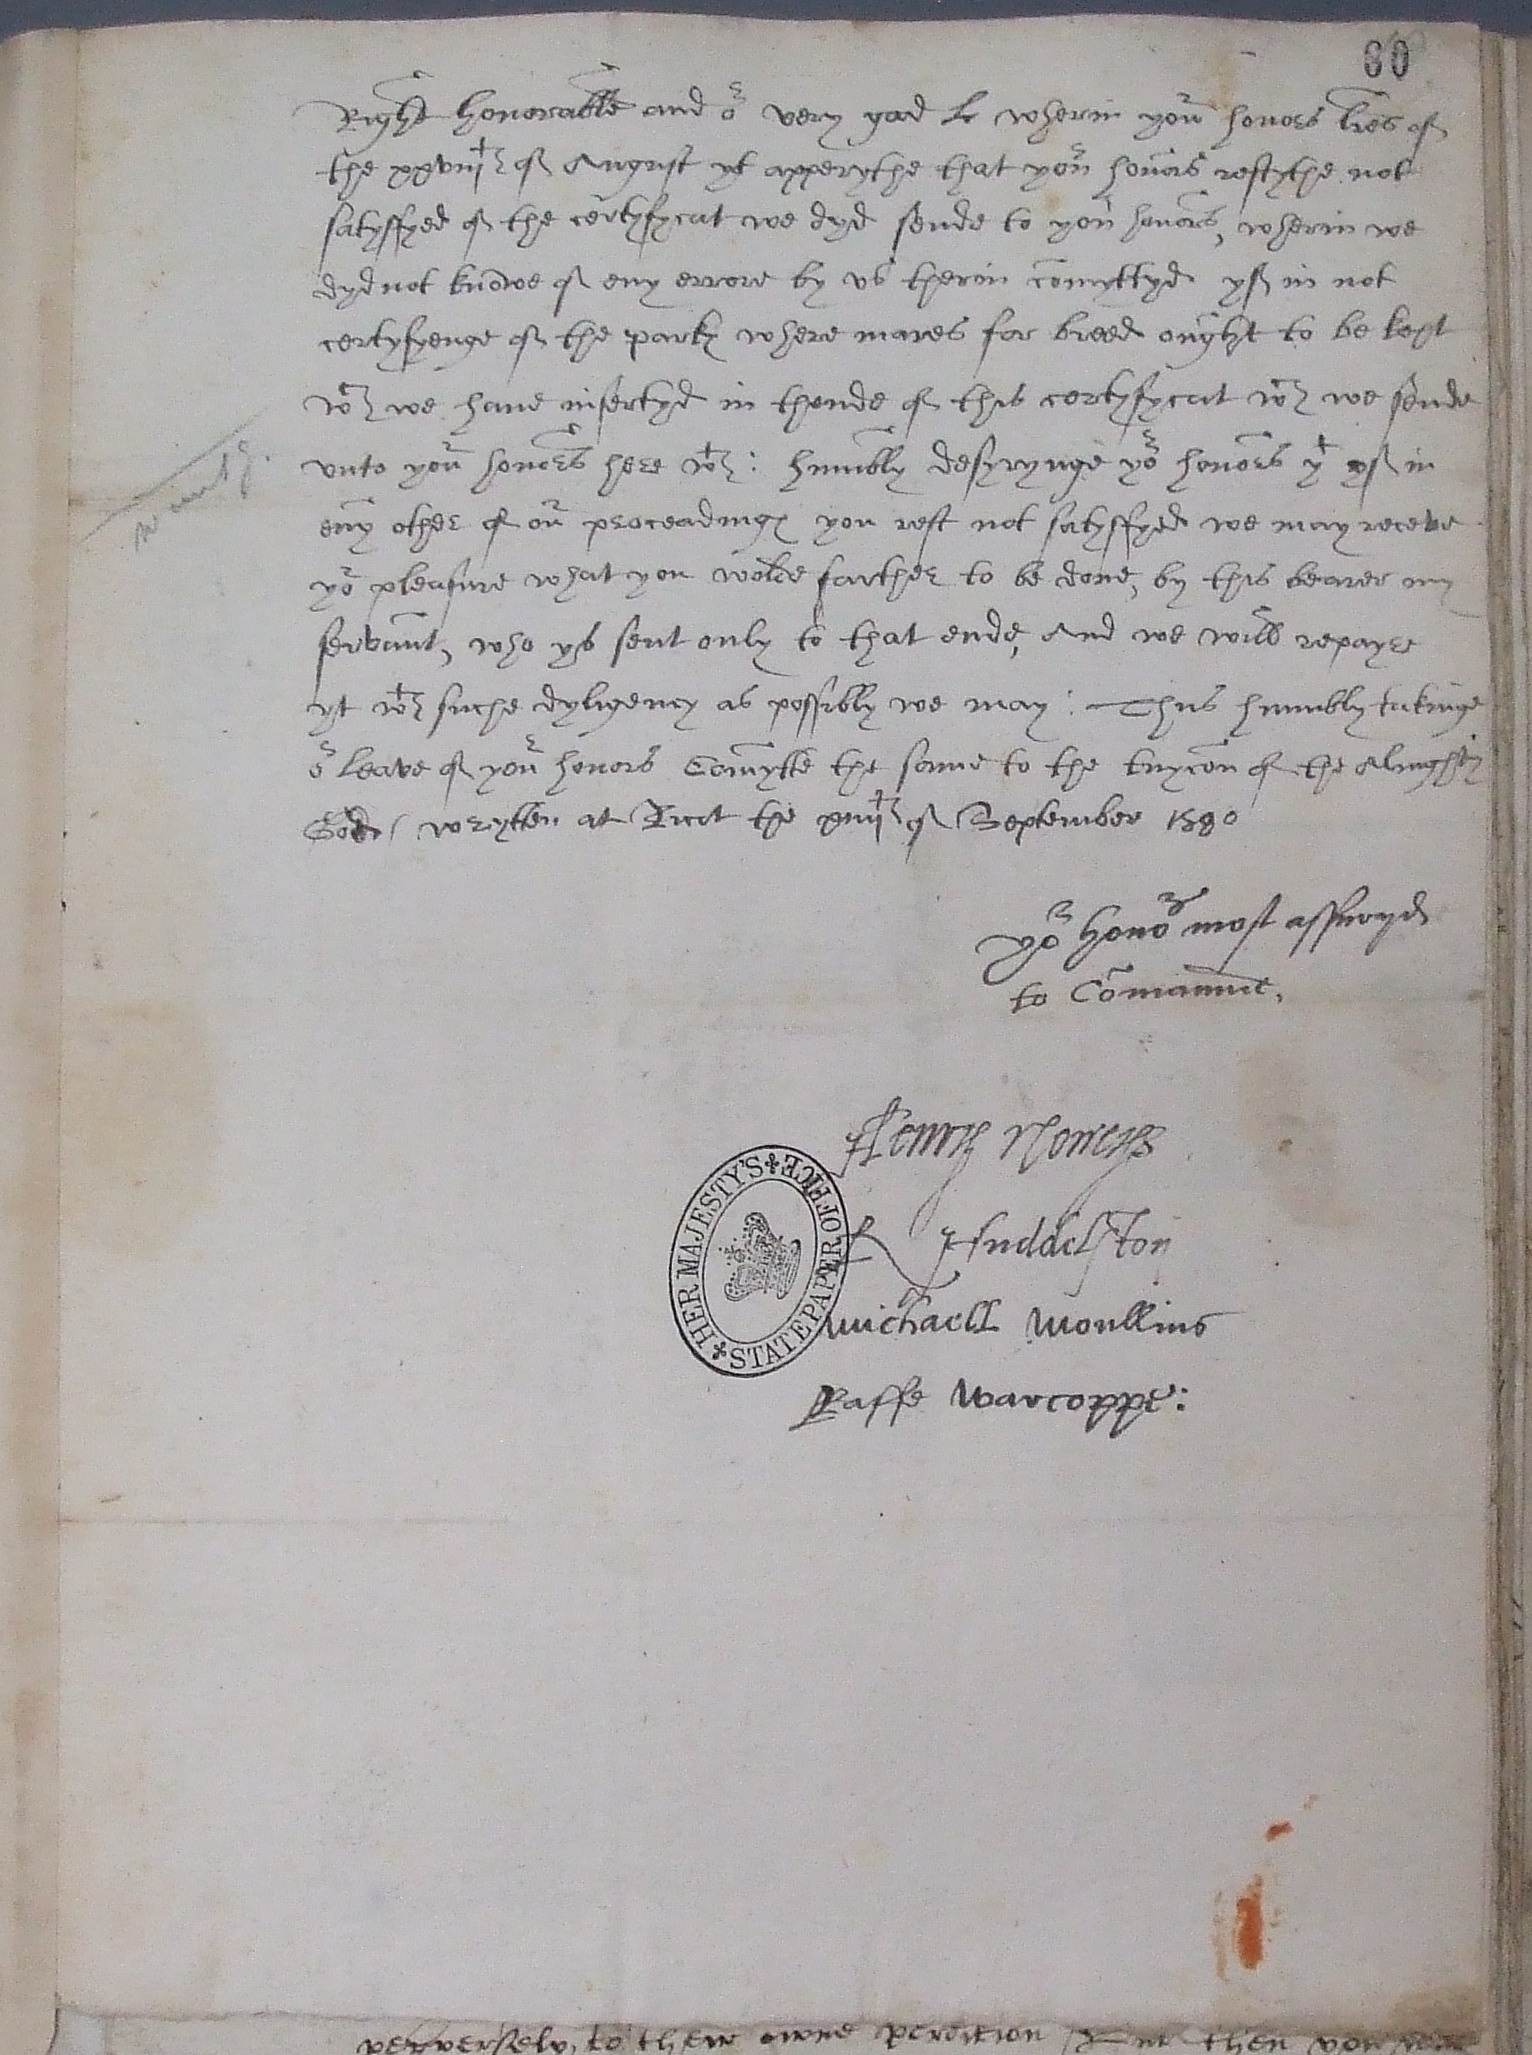 60
Right honorable and or very good L wherin your honors lres of
the xxviijth of August yt apperythe that your honors restythe not
satysfyed of the certyfycat we dyd sende to your honors, wherin we
dyd not knowe of eny errore by us therin comyttyd yf in not
certyfyenge of the parkes where mares for breed ought to be kept
wch we have insertyd in thende of this certyfycat wch we sende
unto your honors here wth : humbly desyrynge yor honors yt yf in
eny other of our proceadinges you rest not satysfyed we may receve
yor pleasure what you wolde farther to be done, by this bearer my
servaunt, who ys sent only to that ende, And we will repayre
yt wth suche dyligency as possibly we may : Thus humbly takinge
or leave of your honors Comytte the same to the tuycon of the Almighty
God / wrytten at the xiiijth of September 1580
wants.
yor honors most assuryd
to Comaunde.
Henry Noreys
R Huddelston
HER MAJESTY'S STATE PAPER OFFICE
Michaell Moullins
Raffe Warcoppe :
perversely, to their owne perdition then you